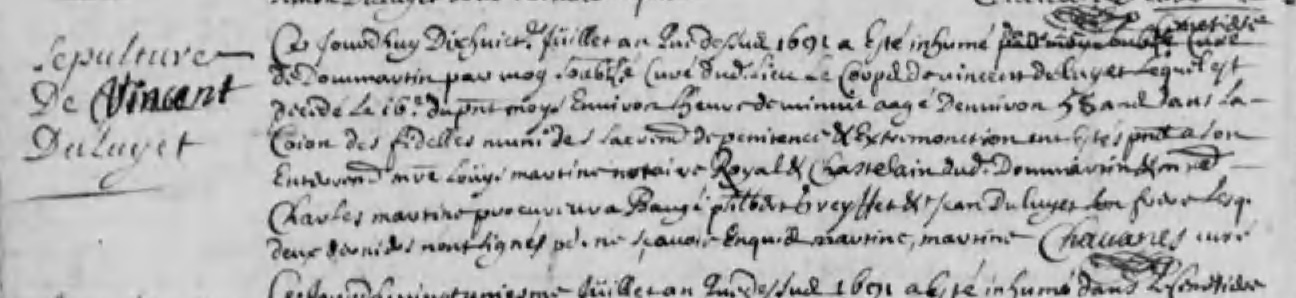 Sepulture
De Vincent
Duluyet
Ce jourdhuy Dixhuict.e Juillet an que dessus 1691 a esté inhumé
de Dommartin par moy soubsé Curé dud. lieu le Corps de vincent duluyet lequel est
decedé le 16.e du pnt moys Environ lheure de minuit aagé Denviron 58 ans dans la
Coion des fidelles muni des sacrem. de penitence & Extremonction ont estés pnts a son
Enterrem. mre Louys martine notaire Royal & Chastelain dud. Dommartin & me
Charles martine procureur a Baugé philbert & Jean Duluyet son frere lesq.
deux derniers nont signés pr. ne sçavoir Enquis martine, martine Chavanes curé
vingt Juillet an que dessus 1691 a esté inhumé dans